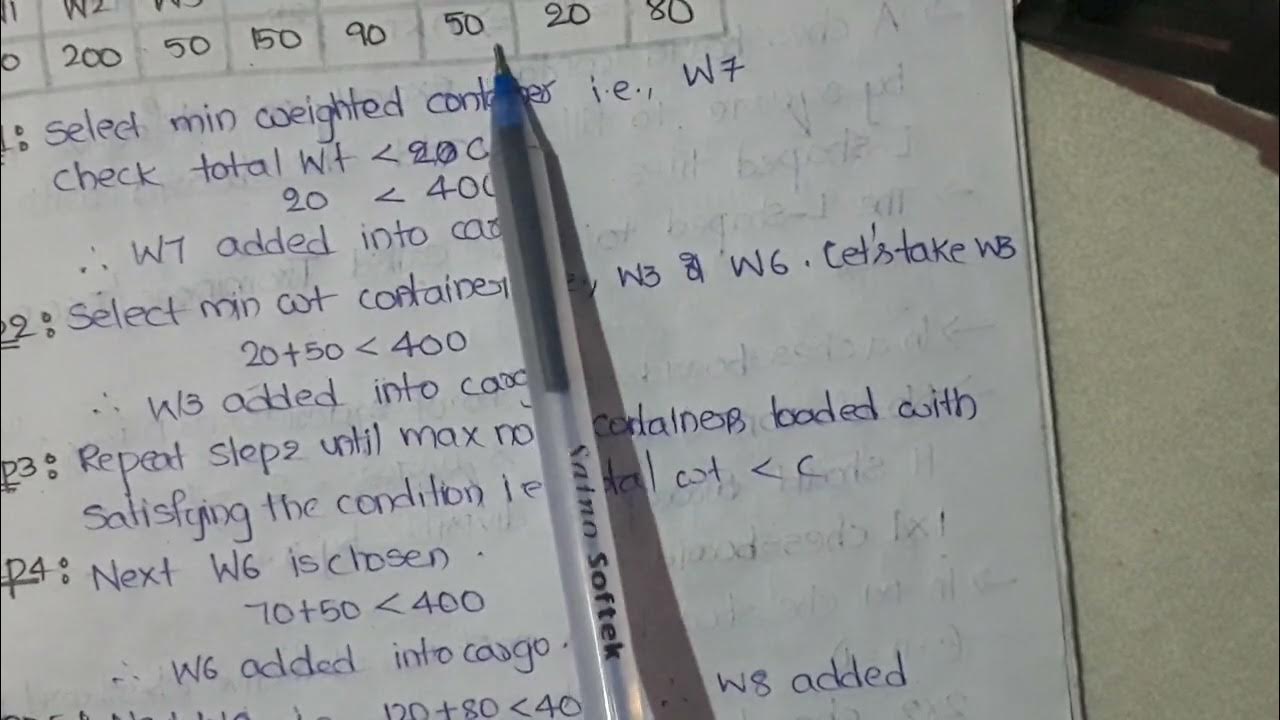 W2
0 200 50 150 90 50 20 80
1: Select min weighted container i.e., W7
check total Wt < C
20 < 400
∴ W7 added into car
p2: Select min wt container, W3 & W6. Let's take W3
20+50 < 400
∴ W3 added into cargo
p3: Repeat step2 until max no containers loaded with
satisfying the condition i.e total wt < C
p4: Next W6 is chosen.
70+50 < 400
∴ W6 added into cargo.
120+80 < 40 ∴ W8 added
Saino Softek